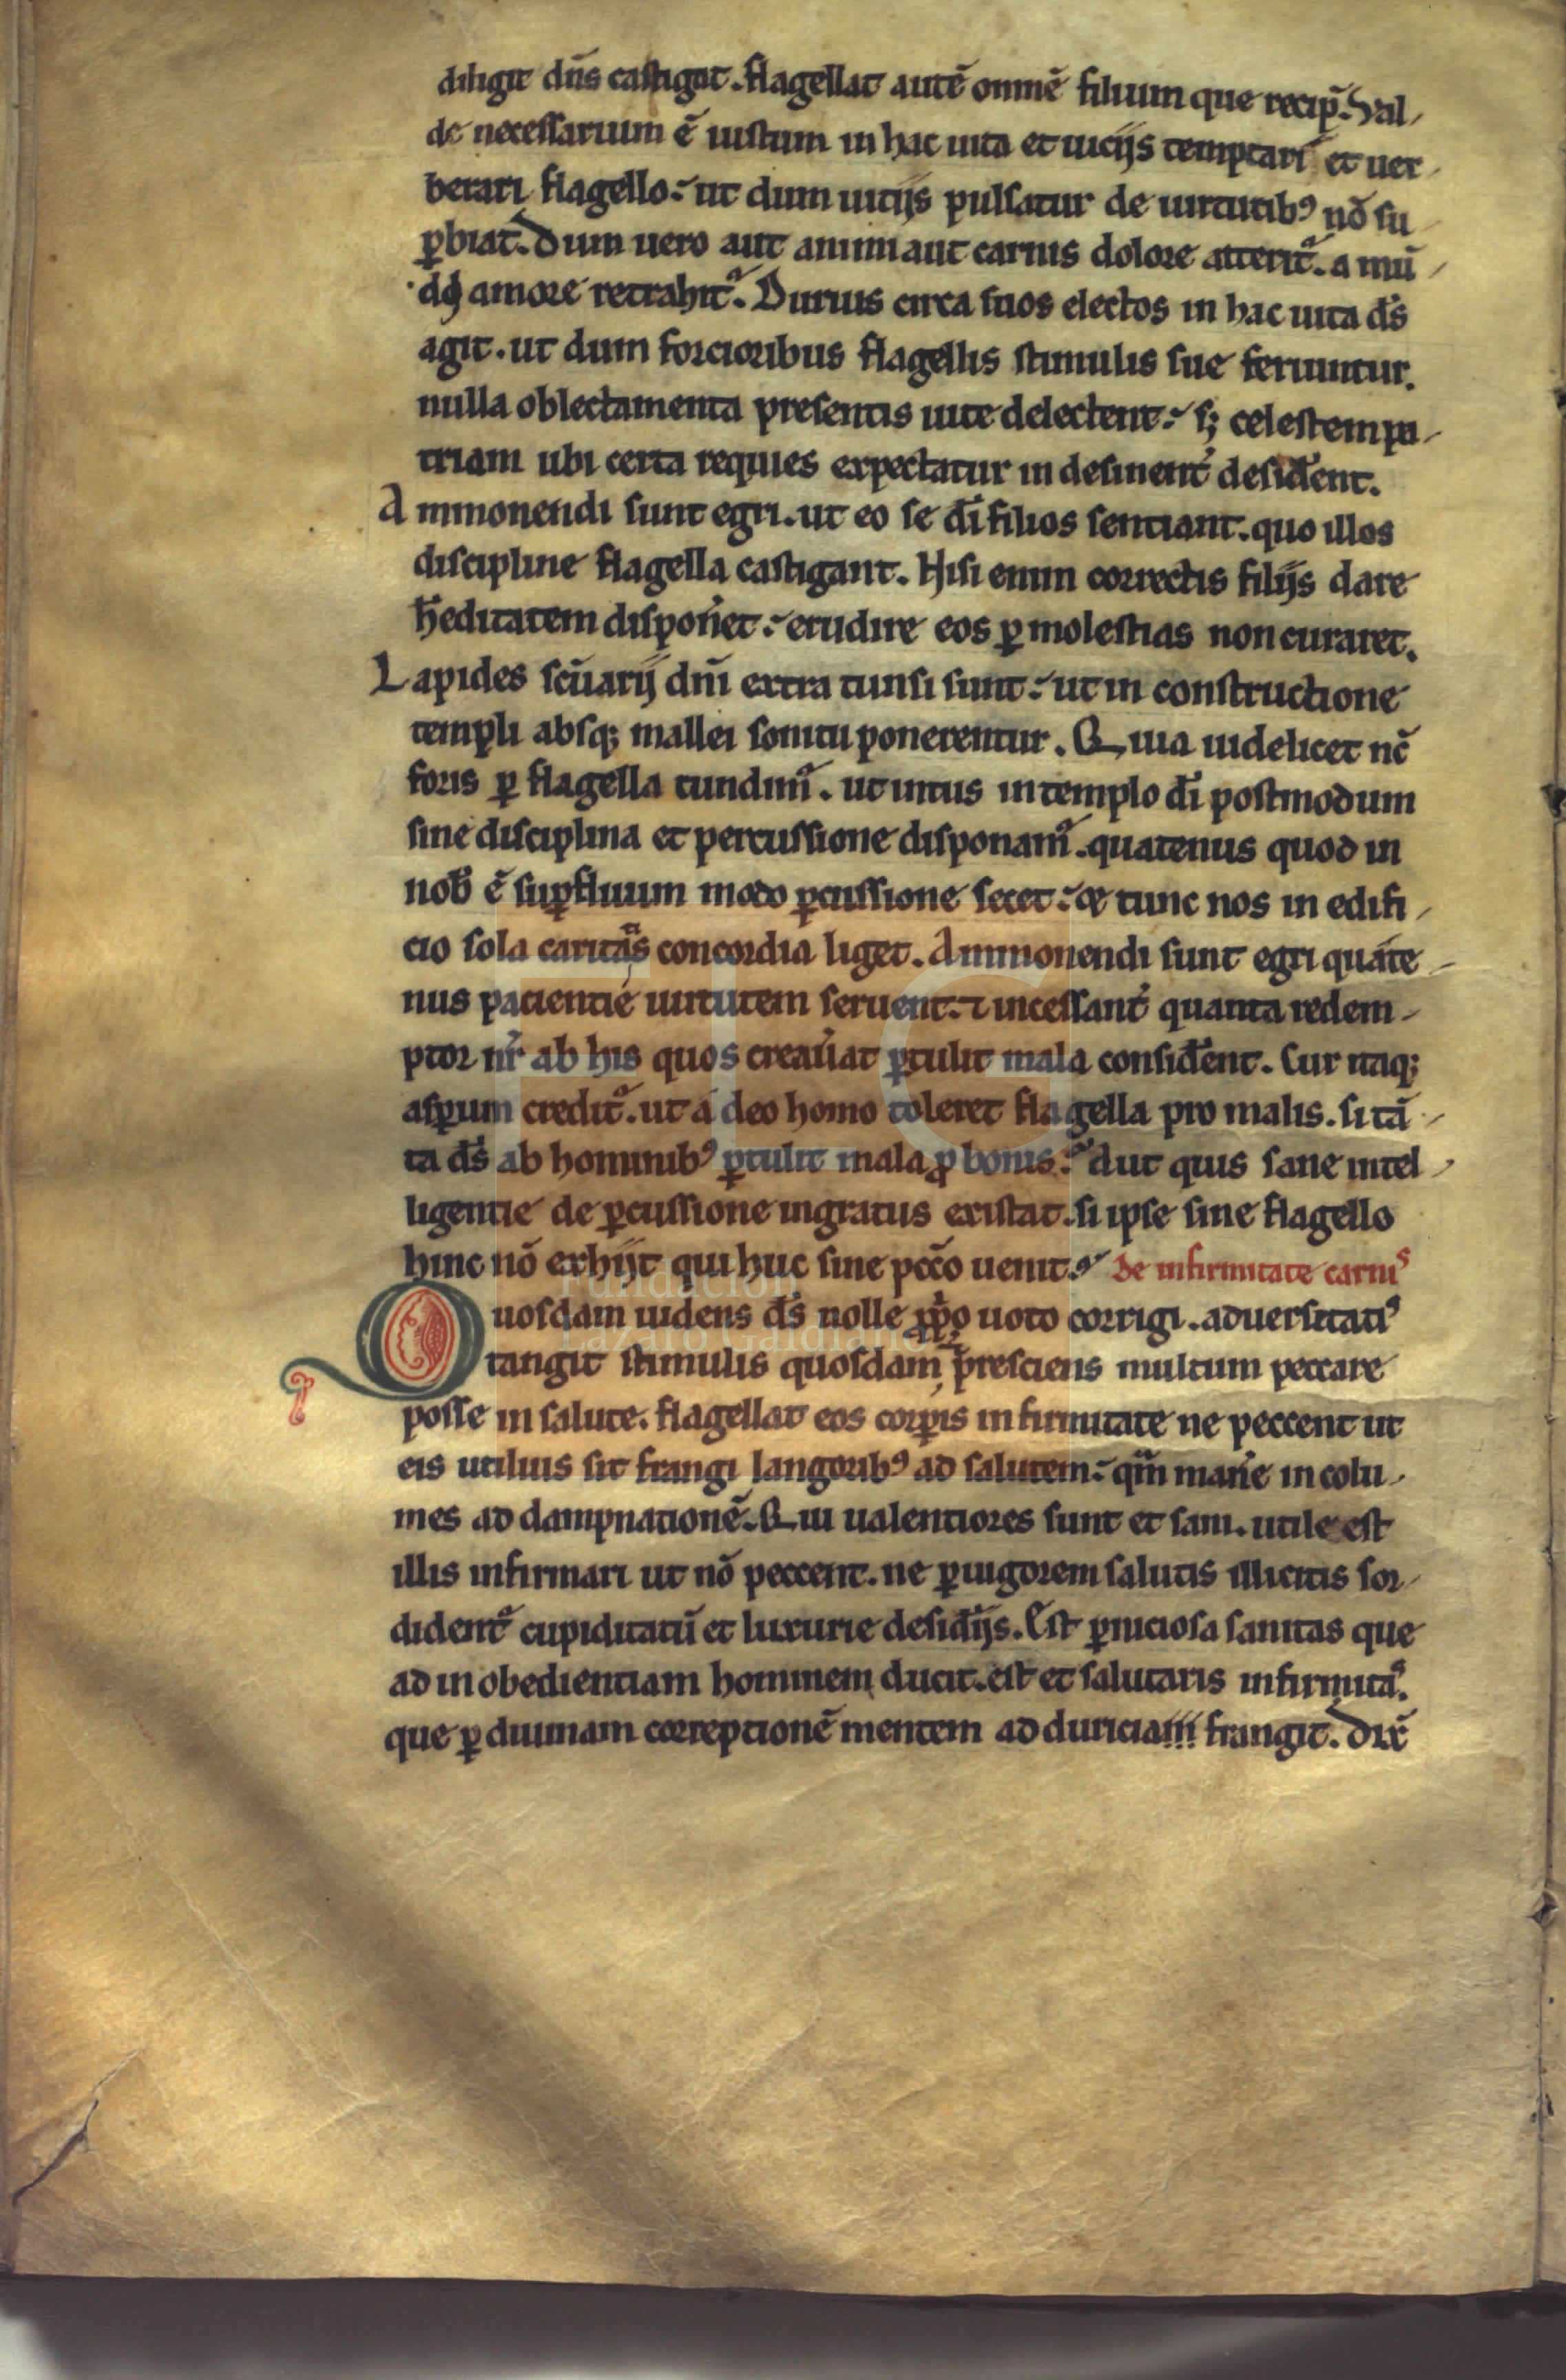 diligit dn̄s castigat. flagellat autē omnē filium que recip̄. Val,
de necessarium ē iustum in hac uita et uiciis temptari et uer,
berari flagello: ut dum uitiis pulsatur de uirtutibꝰ nō su,
ꝑbiat. Dum uero aut animi aut carnis dolore atterit᷑. a mū,
di amore retrahit᷑. Durius circa suos electos in hac uita d̄s
agit. ut dum forcioribus flagellis stimulis sue feriuntur.
nulla oblectamenta presentis uite delectent: sꝫ celestem pa,
triam ubi certa requies expectatur in desinent̉ desid̉ent.
Ammonendi sunt egri. ut eo se dī filios sentiant. quo illos
discipline flagella castigant. Nisi enim correctis filiis dare
h̉editatem dispon̉et: erudire eos ꝑ molestias non curaret.
Lapides sc̄uarij dn̄i extra tunsi sunt: ut in constructione
templi absqꝫ mallei sonitu ponerentur. Quia uidelicet nc̄
foris ꝑ flagella tundimꝰ. ut intus in templo dī postmodum
sine disciplina et percussione disponamꝰ. quatenus quod in
nob̄ ē suꝑfluum modo ꝑcussione secet: et tunc nos in edifi,
cio sola caritas concordia liget. Ammonendi sunt egri quate,
nus pacientie uirtutem seruent. ⁊ incessant̉ quanta redem,
ptor nr̄ ab his quos creaủat ꝑtulit mala consid̉ent. Cur naqꝫ
asꝑum credit᷑. ut a deo homo toleret flagella pro malis. si tā,
ta d̄s ab hominibꝰ ꝑtulit mala ꝓ bonis. Aut quis sane intel,
ligentie de ꝑcussione ingratus existat. si ipse sine flagello
hinc nō exhiit qui huc sine pcc̄o uenit. De infirmitate carnis
Quosdam uidens d̄s nolle ꝓpo uoto corrigi. aduersitatꝰ
tangit stimulis quosdam p̄resciens multum peccare
posse in salute. flagellat eos corꝑis infirmitate ne peccent ut
eis utilius sit frangi langoribꝰ ad salutem: qm̄ man̉e in colu,
mes ad dampnationē. Qui ualentiores sunt et sani. utile est
illis infirmari ut nō peccent. ne ꝑ uigorem salutis illicitis sor,
dident᷑ cupiditatū et luxurie desid̉iis. Est ꝑniciosa sanitas que
ad inobedientiam hominem ducit. est et salutaris infirmitas.
que ꝑ diuinam correptionē mentem ad duriciam frangit. Dix̄
Fundación
Lázaro Galdiano